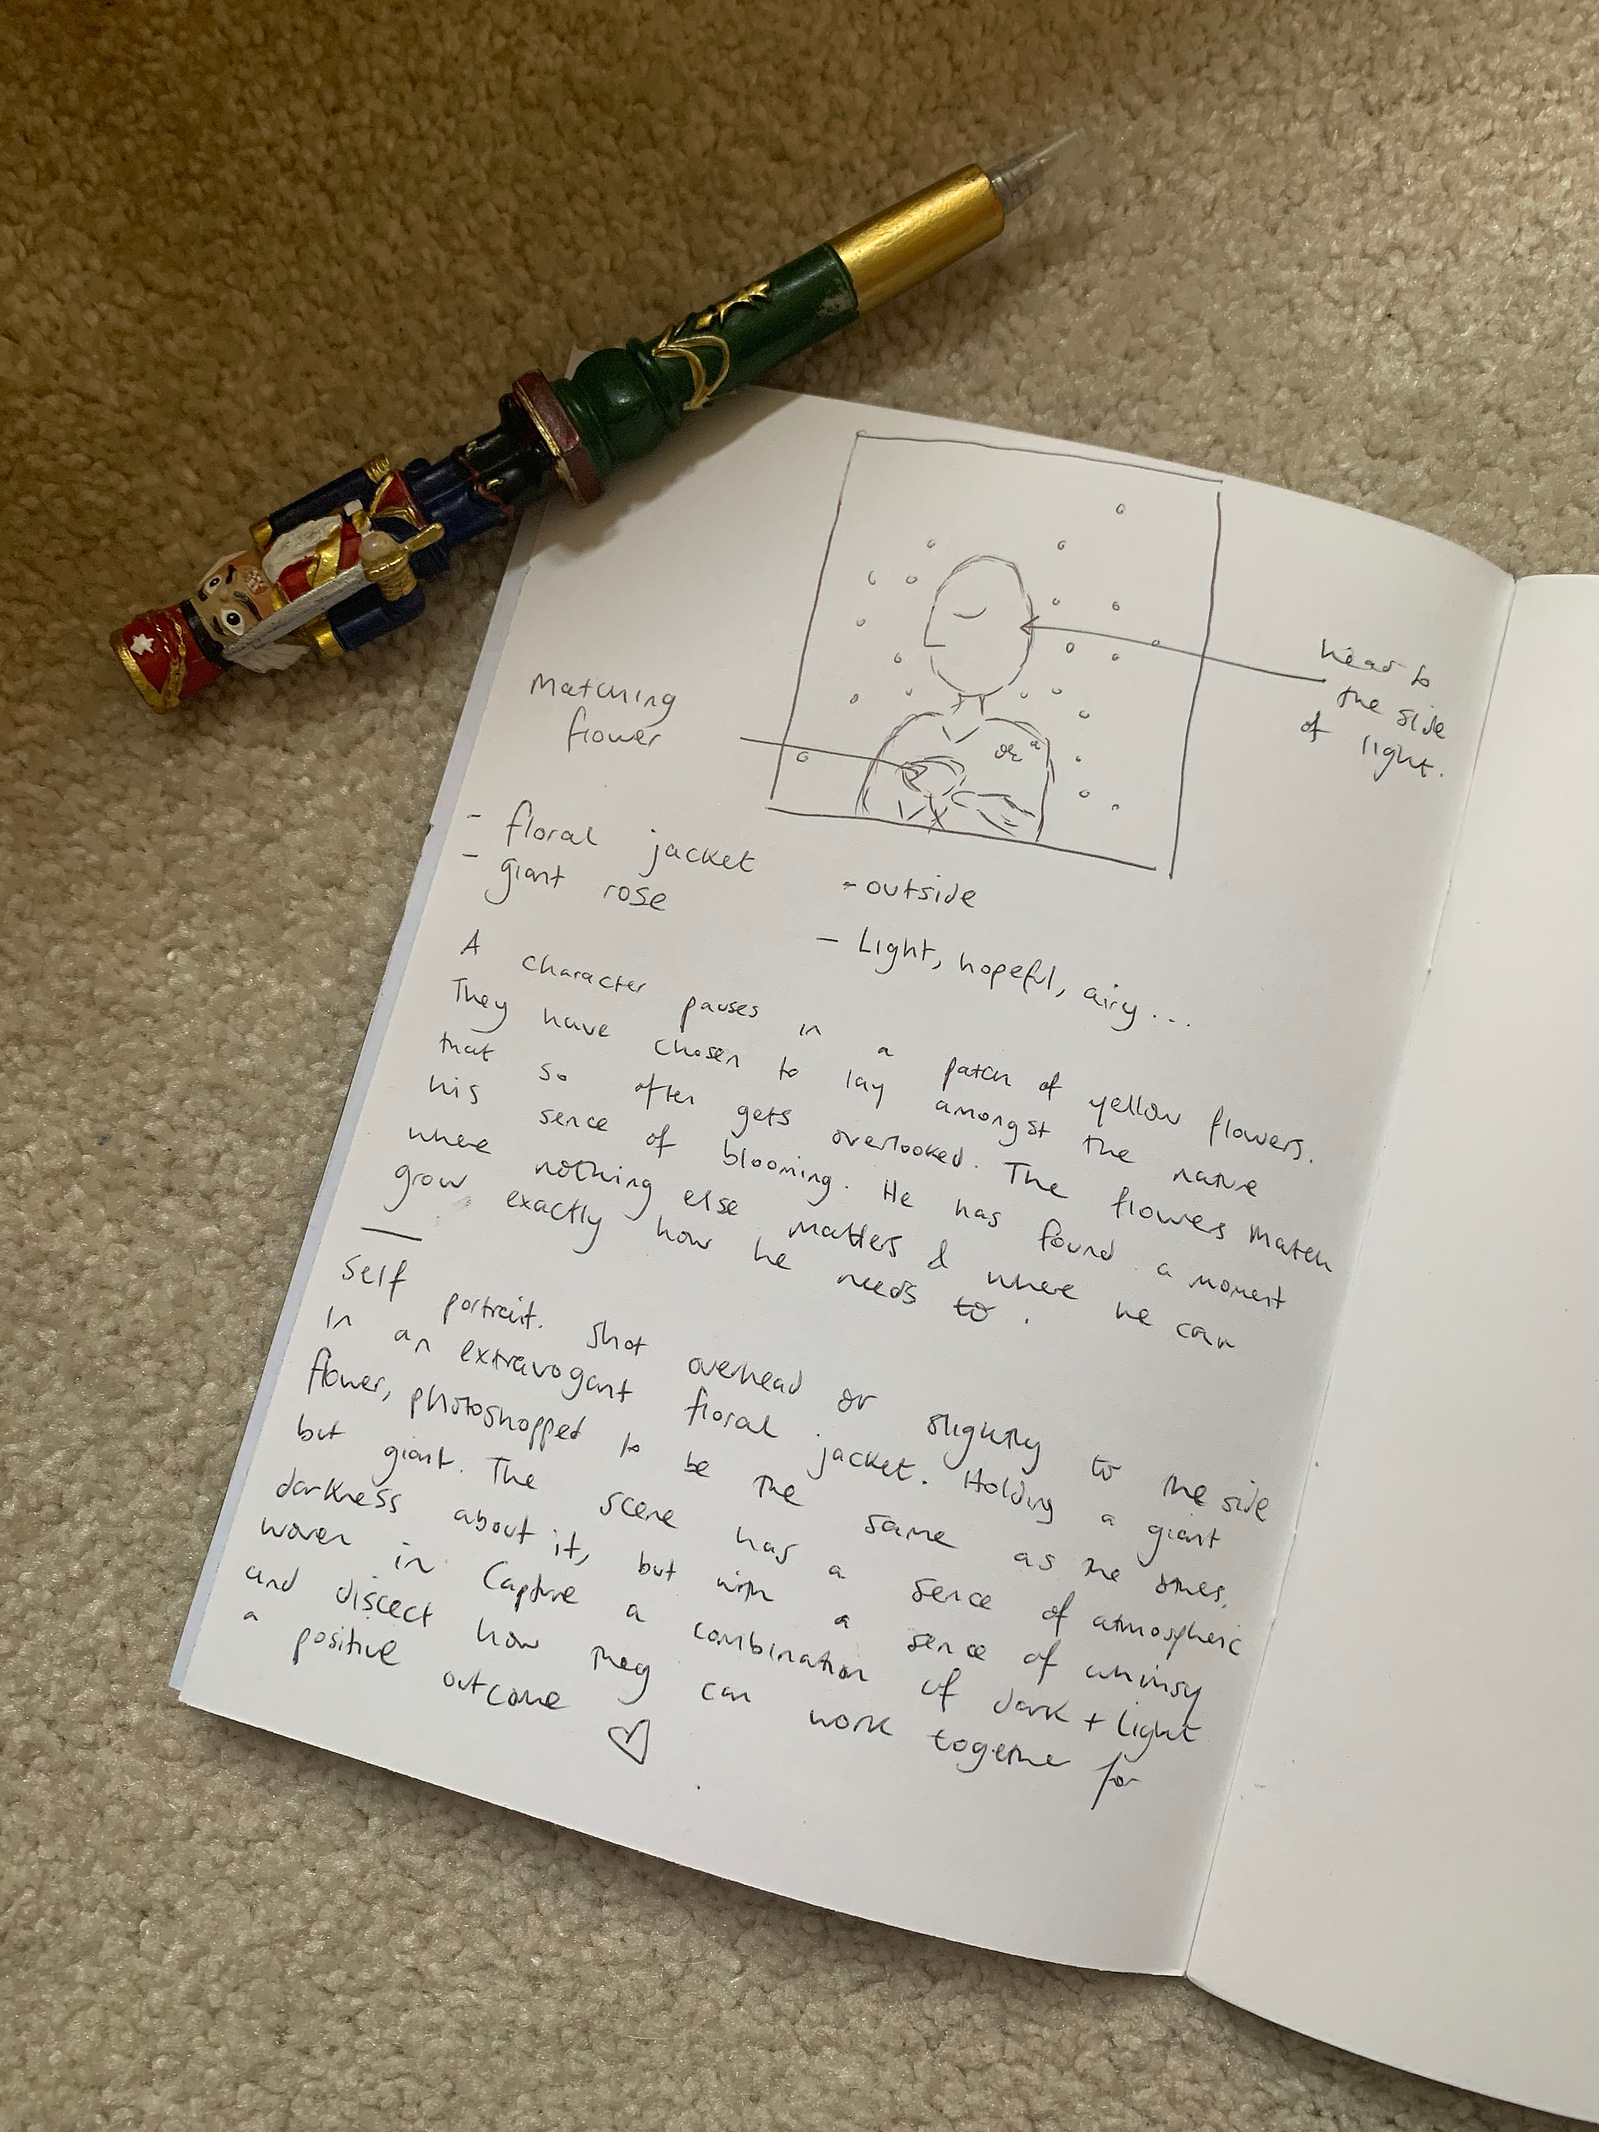 head to
the side
of light.
Matching
flower
- floral jacket
- giant rose
- outside
- Light, hopeful, airy...
A character pauses in a patch of yellow flowers.
They have chosen to lay amongst the nature
that so often gets overlooked. The flowers match
his sence of blooming. He has found a moment
where nothing else matters & where he can
grow exactly how he needs to.
Self portrait. Shot overhead or slightly to the side
In an extravogant floral jacket. Holding a giant
flower, photoshopped to be the same as the others,
but giant. The scene has a sence of atmospheric
darkness about it, but with a sence of whimsy
woven in. Capture a combination of dark + light
and discect how they can work together for
a positive outcome